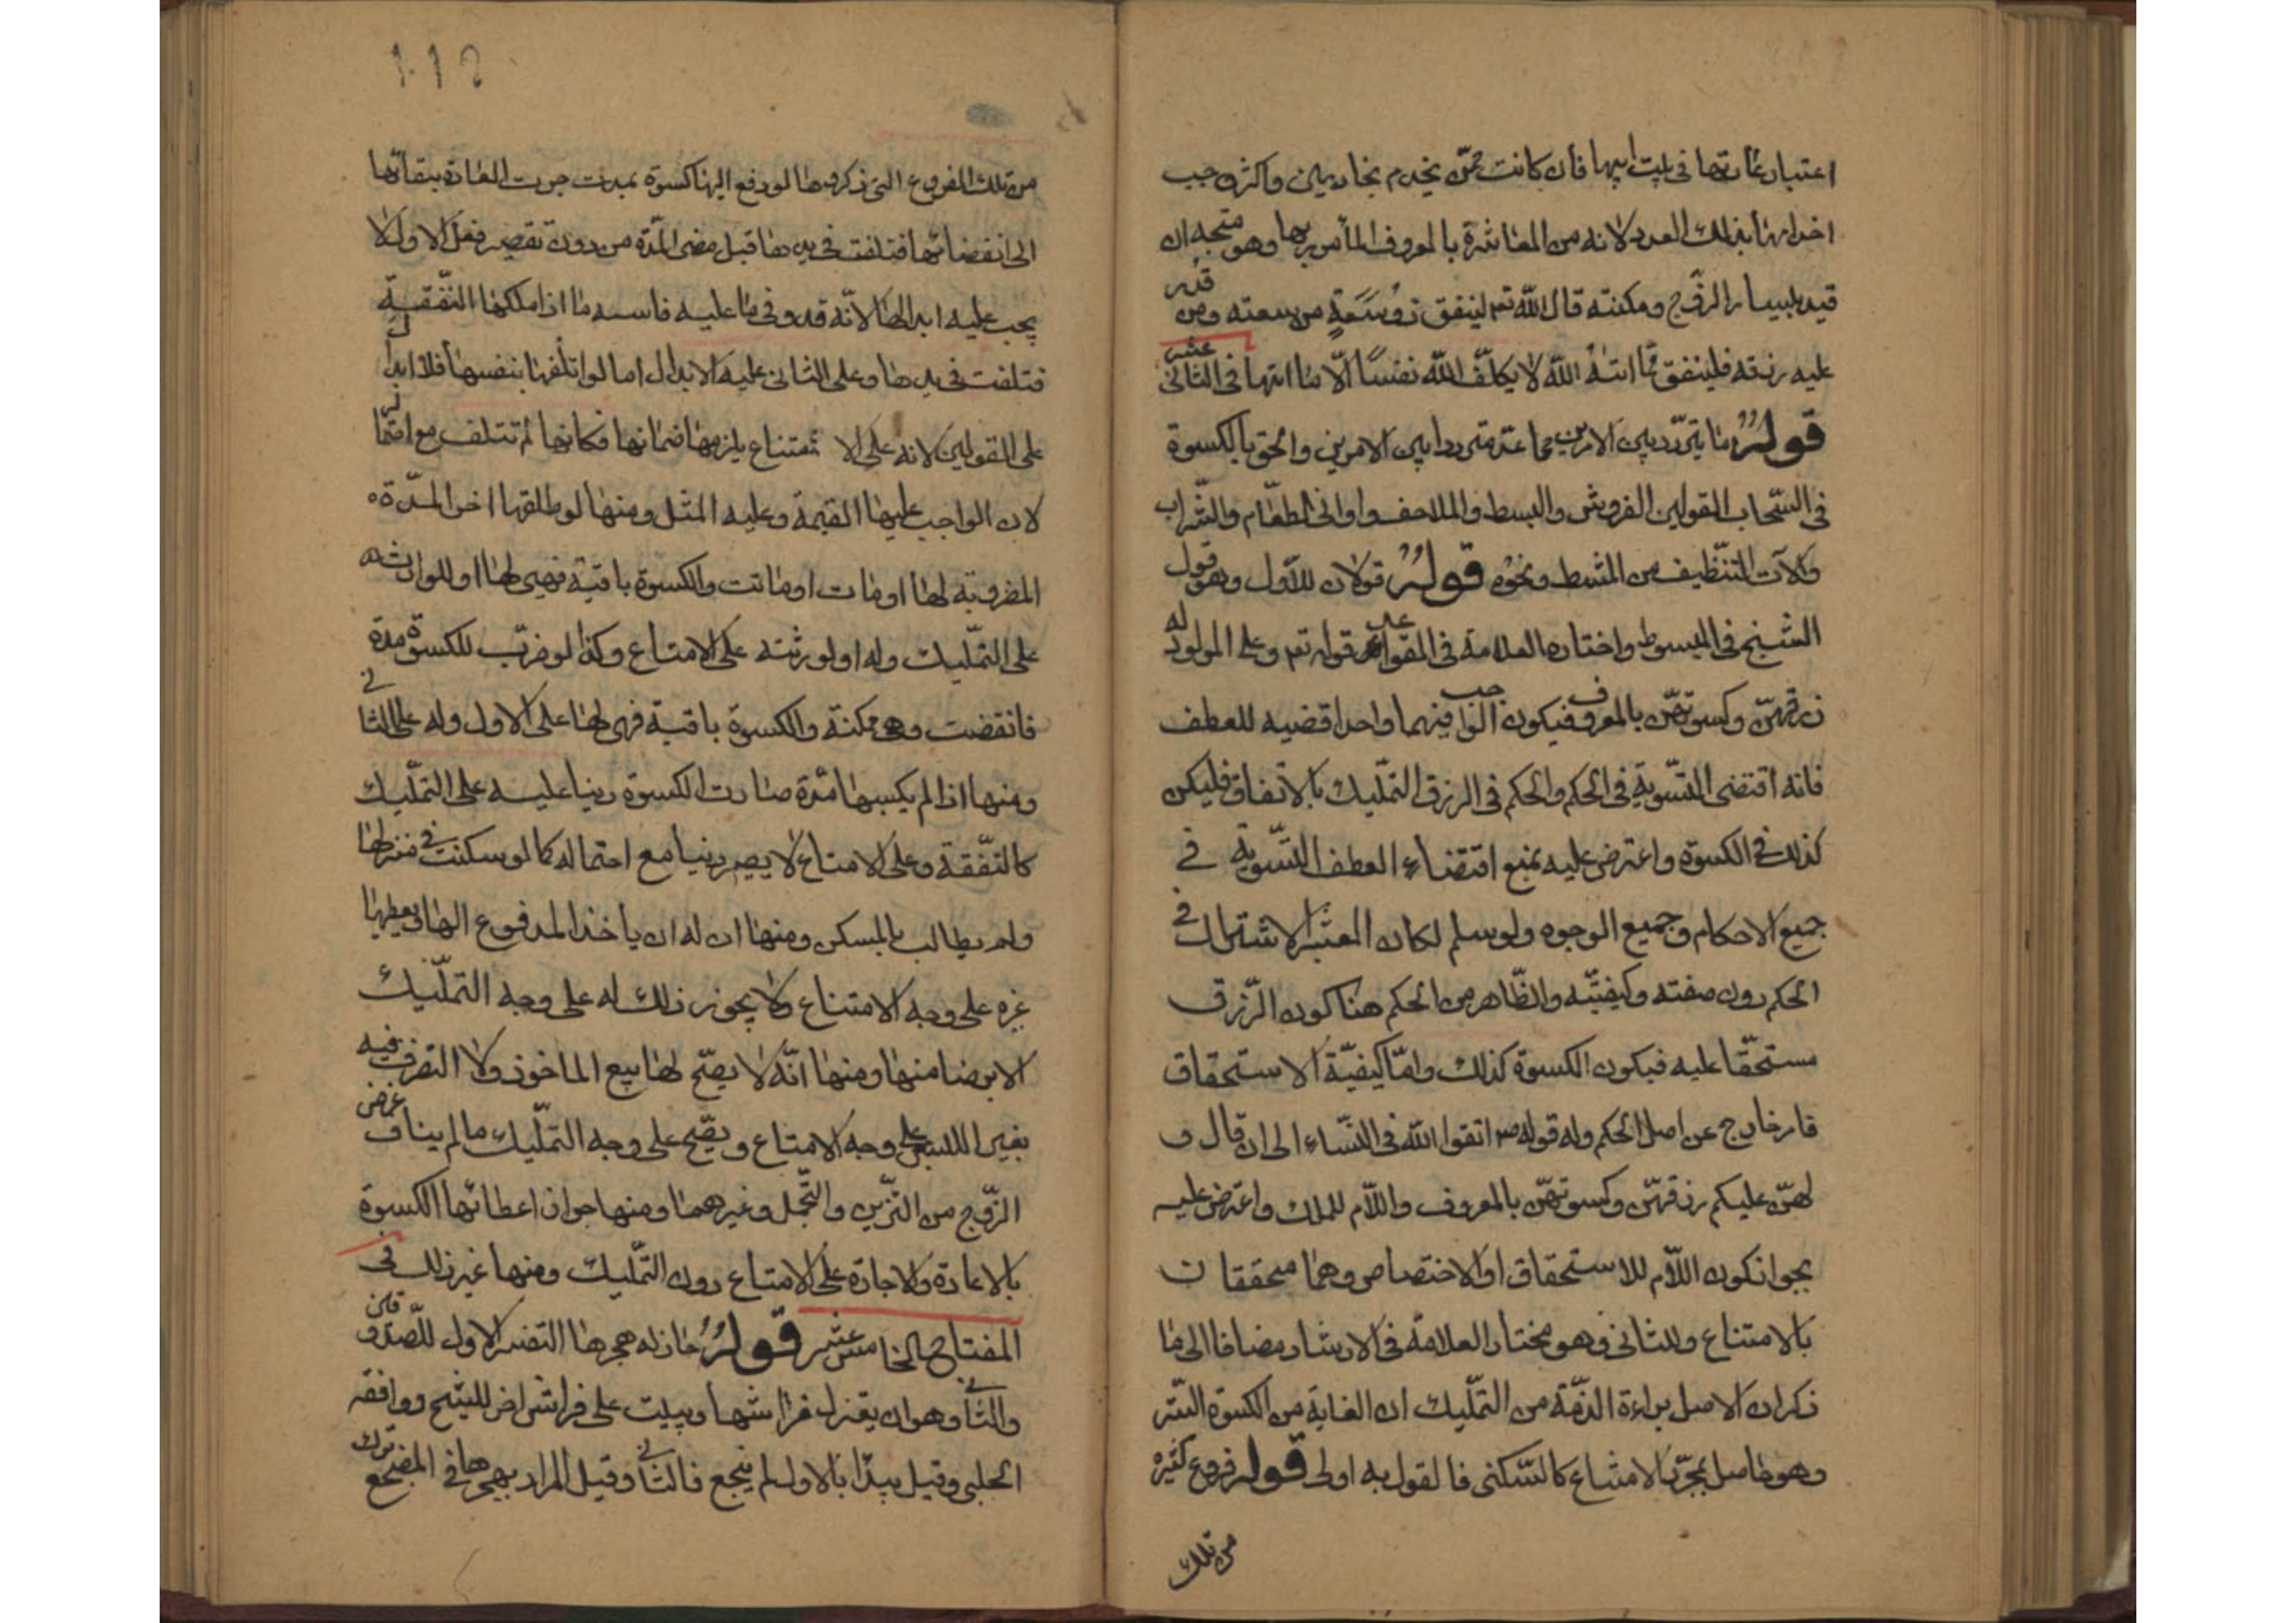 اعتبار عادتها فى بيت ابيها فان كانت ممّن يخدم بخادمين واكثر وجب
اخدامها بذلك العدد لانه من المعاشرة بالمعروف المأمور بها وهو متجه ان
قيد بيسار الزّوج ومكنته قال اللّه تعم لينفق ذو سَعَةٍ من سعته ومن قدر
عليه رزقه فلينفق ممّا اتٰهُ اللّه لا يكلّف اللّه نفسًا الّا ما اتيها فى الثانى عشر
قولُرُ ما يتردّد بين الامرين مما عد مترددا بين الامرين والحق بالكسوة
فى انسحاب القولين الفروش والبسط والملاحف واوانى الطعّام والشّراب
وآلات التنّظيف من المشط ونحوه قولُرُ قولان للاول وهو قول
الشيخ فى المبسوط واختاره العلامة فى القواعد قوله تعم وعلى المولود له
رزقهنّ وكسوتهنّ بالمعروف فيكون الواجب فيهما واحدا قضيه للعطف
فانه اقتضى التسّوية فى الحكم والحكم فى الرزق التمّليك بالاتفاق فليكن
كذلك فى الكسوة واعترض عليه بمنع اقتضاء العطف التسّوية فى
جميع الاحكام وجميع الوجوه ولو سلم لكان المعتبر الاشتراك فى
الحكم دون صفته وكيفيّته والظّاهر من الحكم هنا كون الرّزق
مستحقّا عليه فيكون الكسوة كذلك وامّا كيفيّة الاستحقاق
فامر خارج عن اصل الحكم وله قوله صم اتقوا اللّه فى النسّاء الى ان قال و
لهنّ عليكم رزقهنّ وكسوتهنّ بالمعروف واللّام للملك واعترض عليه
بجواز كون اللّام للاستحقاق او الاختصاص وهما محققان
بالامتناع وللثانى وهو مختار العلامة فى الارشاد مضافا الى ما
ذكر ان الاصل براءة الذمّة من التمّليك ان الغاية من الكسوة السّتر
وهو حاصل بمجرّد الامتاع كالسّكنى فالقول به اولى قولر فروع كثيره
من تلك
من تلك الفروع التى ذكروها لو دفع اليها كسوة بمدت جرت العادة ببقائها
الى انقضائها فتلفت فى يدها قبل مضى المدّة من دون تقصير فعلى الاول لا
يجب عليه ابدالها لانّه قد وفى ما عليه فاسه ما اذا ملكها النفّقة
فتلفت فى يدها وعلى الثانى عليه الابدال اما لو اتلفها بنفسها فلا ابدال
على القولين لانه على الا متناع يلزمها ضمانها فكانها لم تتلف مع
لان الواجب عليها القيمة وعليه المثل ومنها لو طلقها اخر المدّة
المضروبة لها او مات او ماتت والكسوة باقية فهى لها او للوارث
على التمّليك وله او لورثته على الامتاع وكذا لو ضرب للكسوة مدة
فانقضت وهى مكنة والكسوة باقية فهى لها على الاول وله على الثانى
ومنها اذا لم يكسها مدّة صارت الكسوة دينا عليه على التمّليك
كالنفّقة وعلى الامتاع لا يصير دينا مع احتماله كما لو سكنت فى منزلها
ولم يطالب بالمسكن ومنها ان له ان ياخذ المدفوع اليها ويعطيها
غيره على وجه الامتناع ولا يجوز ذلك له على وجه التمّليك
الا برضا منها ومنها انّه لا يصّح لها بيع الماخوذ ولا التصرف فيه
بغير اللبس على وجه الامتاع ويصّح على وجه التمّليك ما لم يناف غرض
الزّوج من التزّين والتجّمل وغيرهما ومنها جواز اعطائها الكسوة
بالاعادة والاجارة على الامتاع دون التمّليك ومنها غير ذلك فى
المفتاح الخامس عشر قولُرُ جاز له هجرها التفسر الاول للصّدوقين
والثانى وهو ان يعتزل فراشها ويبيت على فراش اخر للشيخ ووافقه
الحلبى وقيل يبدّا بالاول لم ينجع فالثانى وقيل المراد بهجرها فى المضجع ترك